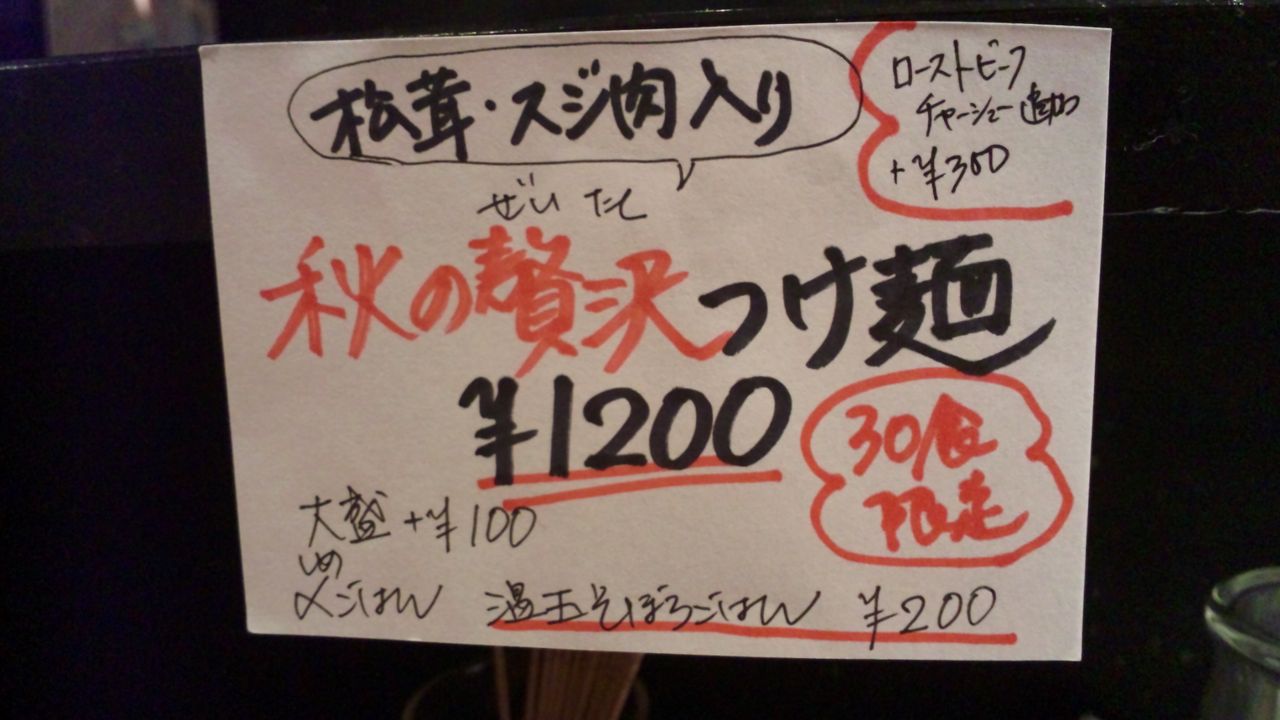 松茸・スジ肉入り
ローストビーフ
チャーシュー追加
+¥300
ぜいたく
秋の贅沢つけ麺
¥1200
30食
限定
大盛+¥100
しめ
〆ごはん 温玉そぼろごはん ¥200